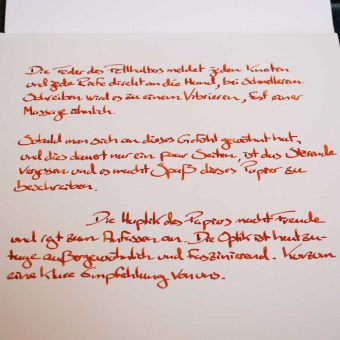 Die Feder des Füllhalters meldet jeden Knoten
und jede Riefe direkt an die Hand, bei schnellerem
Schreiben wird es zu einem Vibrieren, fast einer
Massage ähnlich.
Sobald man sich an dieses Gefühl gewöhnt hat,
und dies dauert nur ein paar Seiten, ist das Störende
vergessen und es macht Spaß dieses Papier zu
beschreiben.
Die Haptik des Papiers macht Freude
und regt zum Anfassen an. Die Optik ist heutzu-
tage außergewöhnlich und faszinierend. Kurzum
eine klare Empfehlung von uns.